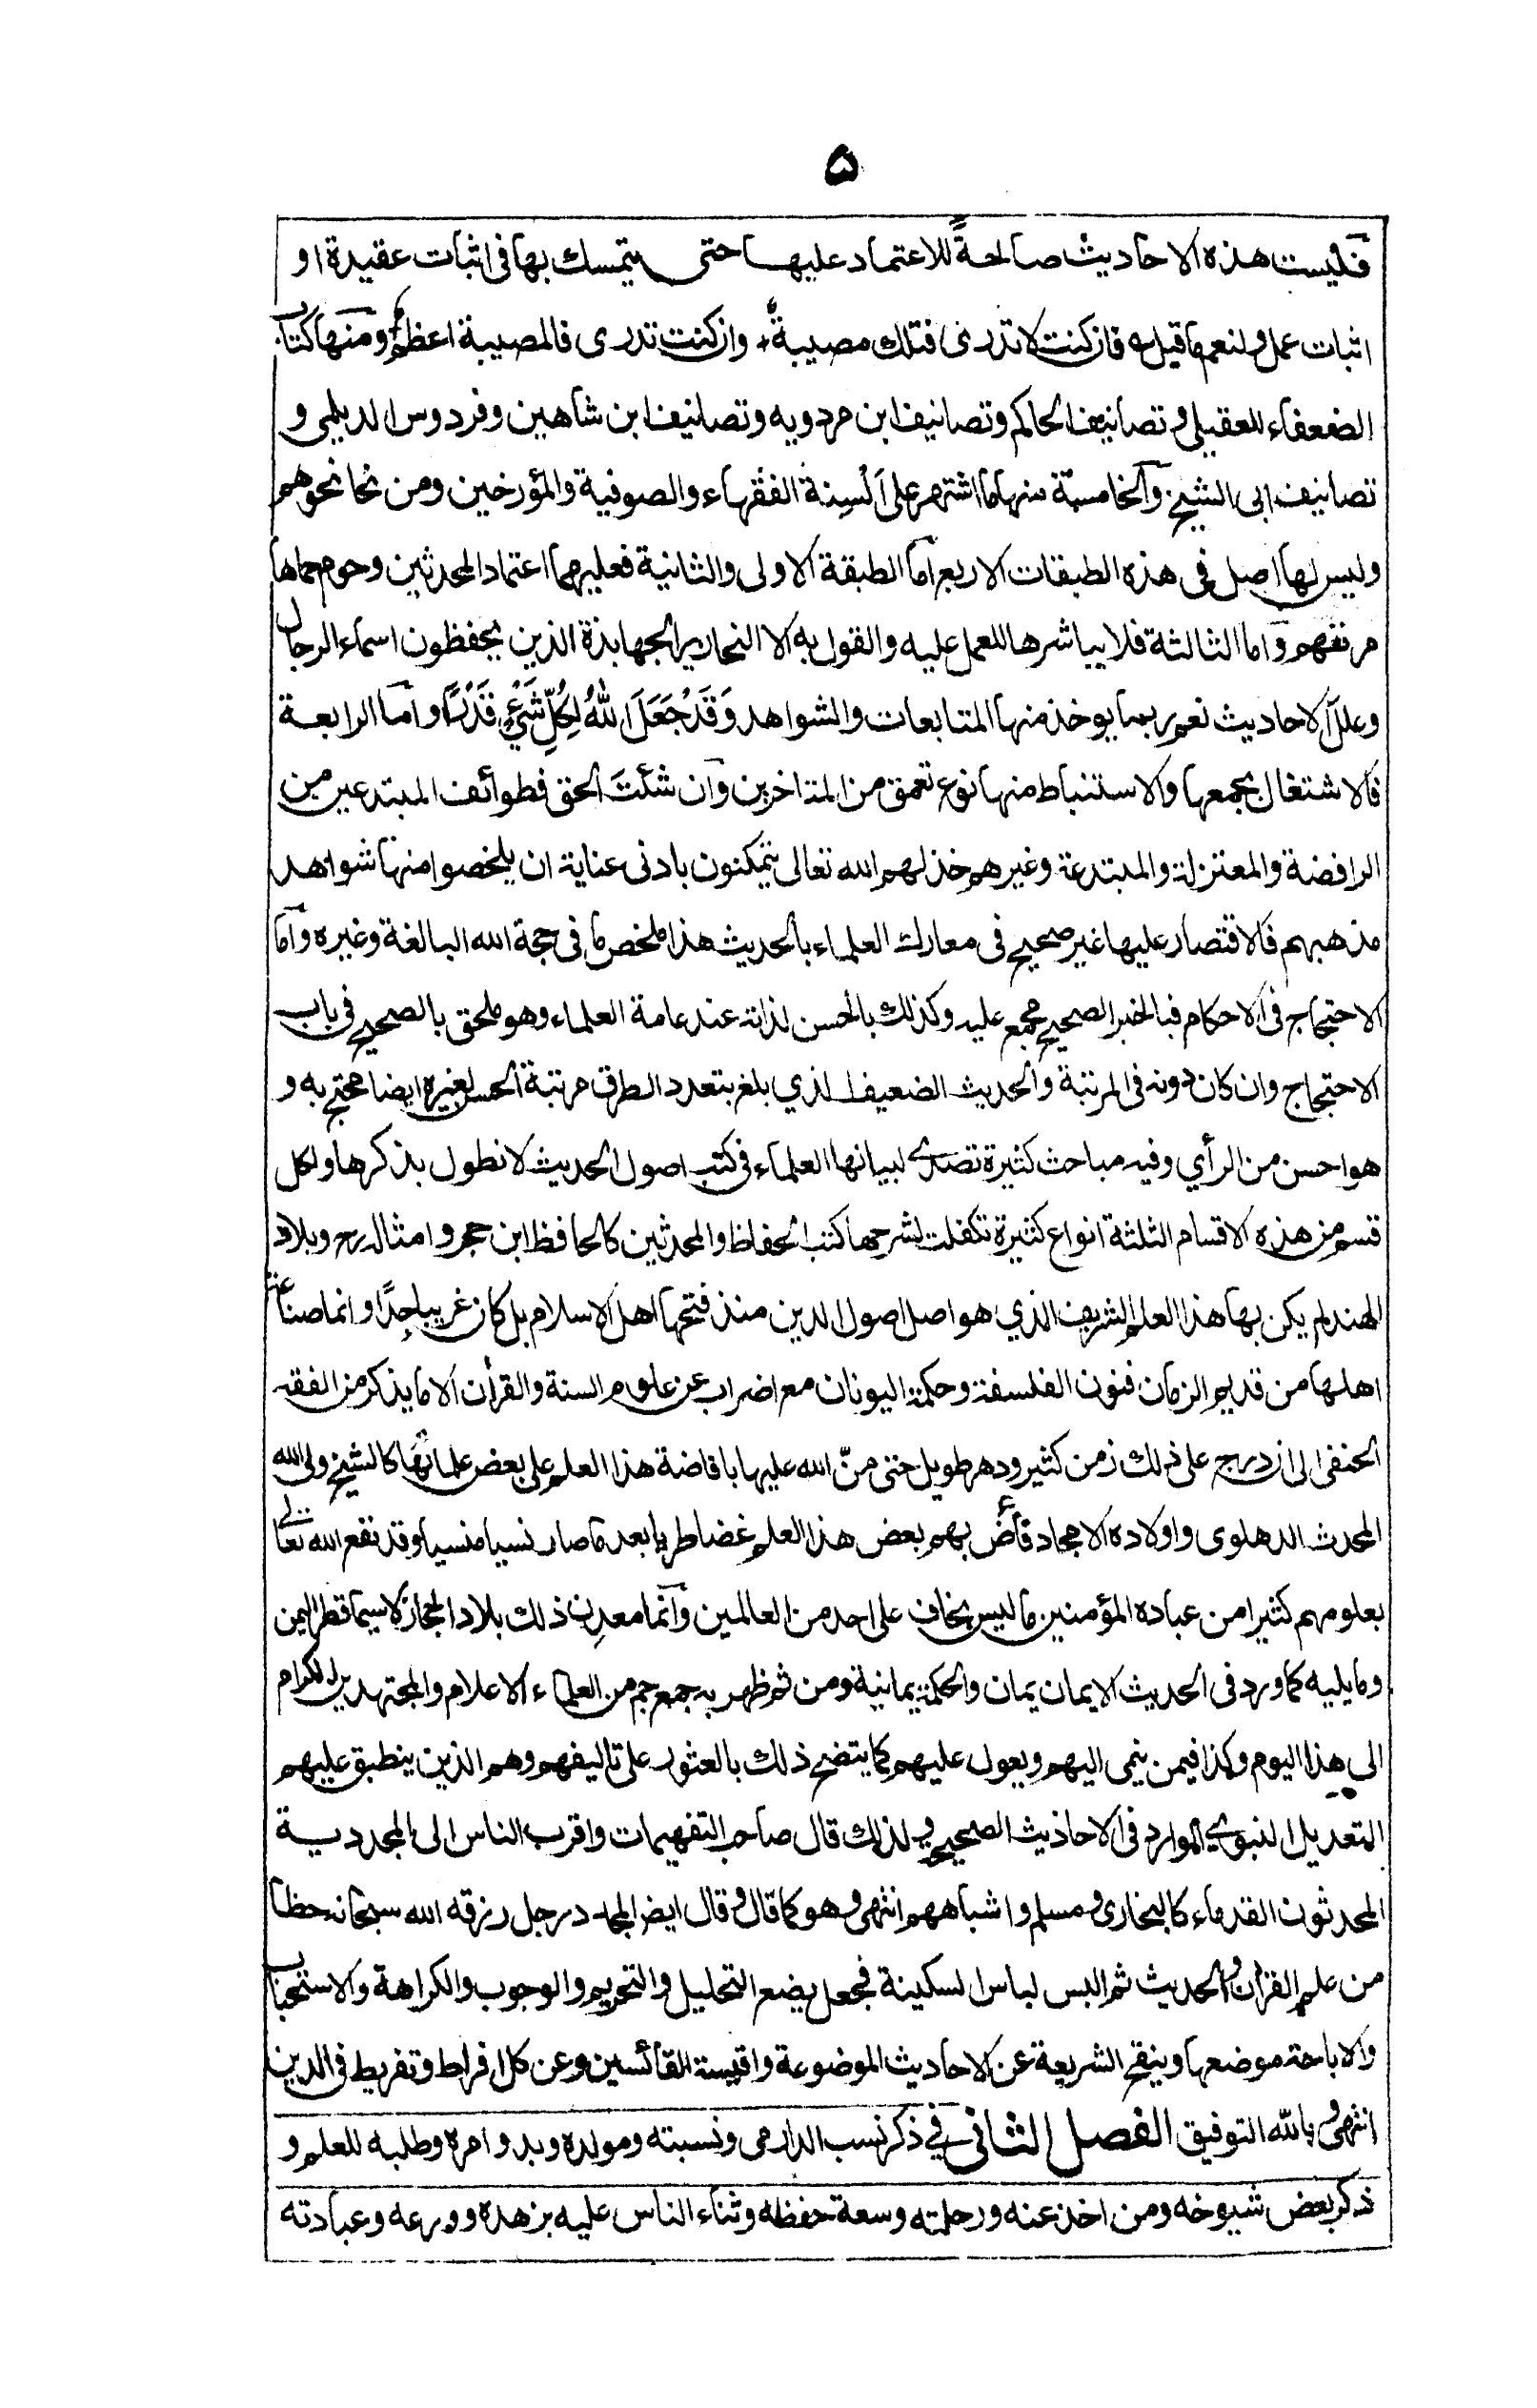 ۵
فليست هذه الاحاديث صالحةً للاعتماد عليها حتى يتمسك بها فى اثبات عقيدة او
اثبات عمل ولنعم ما قيل ه فان كنت لا تدرى فتلك مصيبةٌ ٭ وان كنت تدرى فالمصيبة اعظم و منها كتاب
الضعفاء للعقيلى و تصانيف الحاكم و تصانيف ابن مردويه و تصانيف ابن شاهين و فردوس الديلمى و
تصانيف ابى الشيخ و الخامسة منها ما اشتهر على اَلْسِنة الفقهاء والصوفية والمؤرخين ومن نحا نحوهم
وليس لها اصل فى هذه الطبقات الاربع اما الطبقة الاولى والثانية فعليهما اعتماد المحدثين وحوم حماها
مرتعهم و اما الثالثة فلا يباشرها للعمل عليه والقول به الا النحارير الجهابذة الذين يحفظون اسماء الرجال
وعلل الاحاديث نعم ربما يوخذ منها المتابعات والشواهد وَقَدْ جَعَلَ اللهُ لِكُلِّ شَيْءٍ قَدْرًا و اما الرابعة
فالاشتغال بجمعها والاستنباط منها نوع تعمق من المتاخرين و ان شئتَ الحق فطوائف المبتدعين من
الرافضة والمعتزلة والمبتدعة وغيرهم خذلهم الله تعالى يتمكنون بادنى عناية ان يلخصوا منها شواهد
مذهبهم فالاقتصار عليها غير صحيح فى معارك العلماء بالحديث هذا ملخص ما فى حجة الله البالغة وغيره و اما
الاحتجاج فى الاحكام فبالخبر الصحيح مجمع عليه وكذلك بالحسن لذاته عند عامة العلماء وهو ملحق بالصحيح فى باب
الاحتجاج وان كان دونه فى المرتبة والحديث الضعيف الذي بلغ بتعدد الطرق مرتبة الحسن لغيره ايضا محتج به و
هو احسن من الرأي وفيه مباحث كثيرة تصدى لبيانها العلماء فى كتب اصول الحديث لا نطول بذكرها ولكل
قسم من هذه الاقسام الثلثة انواع كثيرة تكفلت لشرحها كتب الحفاظ والمحدثين كالحافظ ابن حجر و امثاله رح وبلاد
الهند لم يكن بها هذا العلم الشريف الذي هو اصل اصول الدين منذ فتحها اهل الاسلام بل كان غريبا جدًا و انما صناعة
اهلها من قديم الزمان فنون الفلسفة وحكمة اليونان مع اضراب عن علوم السنة والقرأن الا ما يذكر من الفقه
الحنفى الى ان درج على ذلك زمن كثير ودهر طويل حتى منّ الله عليها بافاضة هذا العلم على بعض علمائها كالشيخ ولى الله
المحدث الدهلوى و اولاده الامجاد فأض بهم بعض هذا العلم غضا طريا بعد ما صار نسيا منسيا وقد نفع الله تعالى
بعلومهم كثيرا من عباده المؤمنين ما ليس بخاف على احد من العالمين و انما معدن ذلك بلاد الحجاز لا سيما قطر اليمن
وما يليه كما ورد فى الحديث الايمان يمان والحكمة يمانية ومن ثم ظهر به جمع جم من العلماء الاعلام والمجتهدين الكرام
الى هذا اليوم وكذا فيمن ينمى اليهم ويعول عليهم كما يتضح ذلك بالعثور على تاليفهم وهم الذين ينطبق عليهم
التعديل النبوي الوارد فى الاحاديث الصحيحة و لذلك قال صاحب التفهيمات واقرب الناس الى المجددية
المحدثون القدماء كالبخارى و مسلم و اشباههم انتهى و هو كما قال و قال ايضا المجدد رجل رزقه الله سبحانه حظا
من علم القرأن و الحديث ثم البس لباس السكينة فجعل يضع التحليل والتحريم والوجوب والكراهة والاستحباب
والاباحة موضعها وينقح الشريعة عن الاحاديث الموضوعة واقيسة القائسين وعن كل افراط وتفريط فى الدين
انتهى و بالله التوفيق الفصل الثانى فى ذكر نسب الدارمى ونسبته ومولده وبدو امره وطلبه للعلم و
ذكر بعض شيوخه ومن اخذ عنه ورحلته وسعة حفظه وثناء الناس عليه بزهده وورعه وعبادته